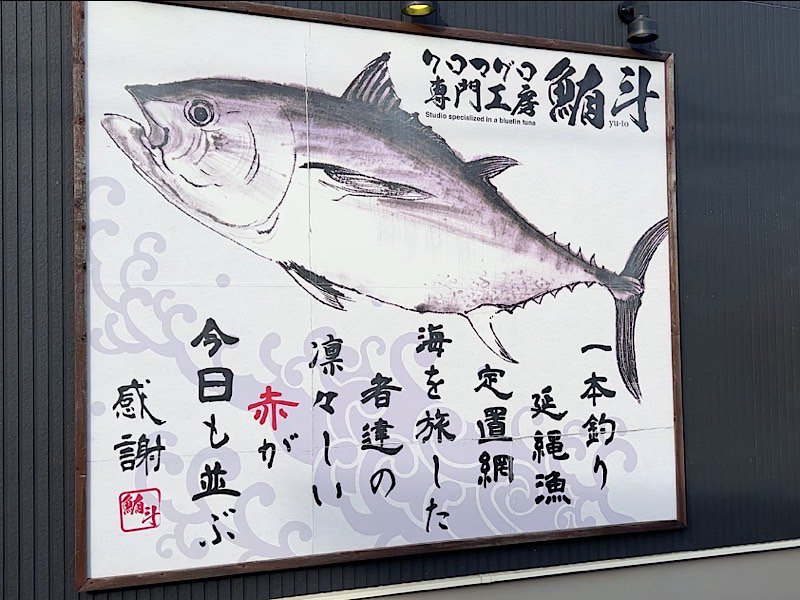 クロマグロ
専門工房
鮪斗
Studio specialized in a bluefin tuna
yu-to
一本釣り
延縄漁
定置網
海を旅した
者達の
凛々しい
赤が
今日も並ぶ
感謝
鮪斗